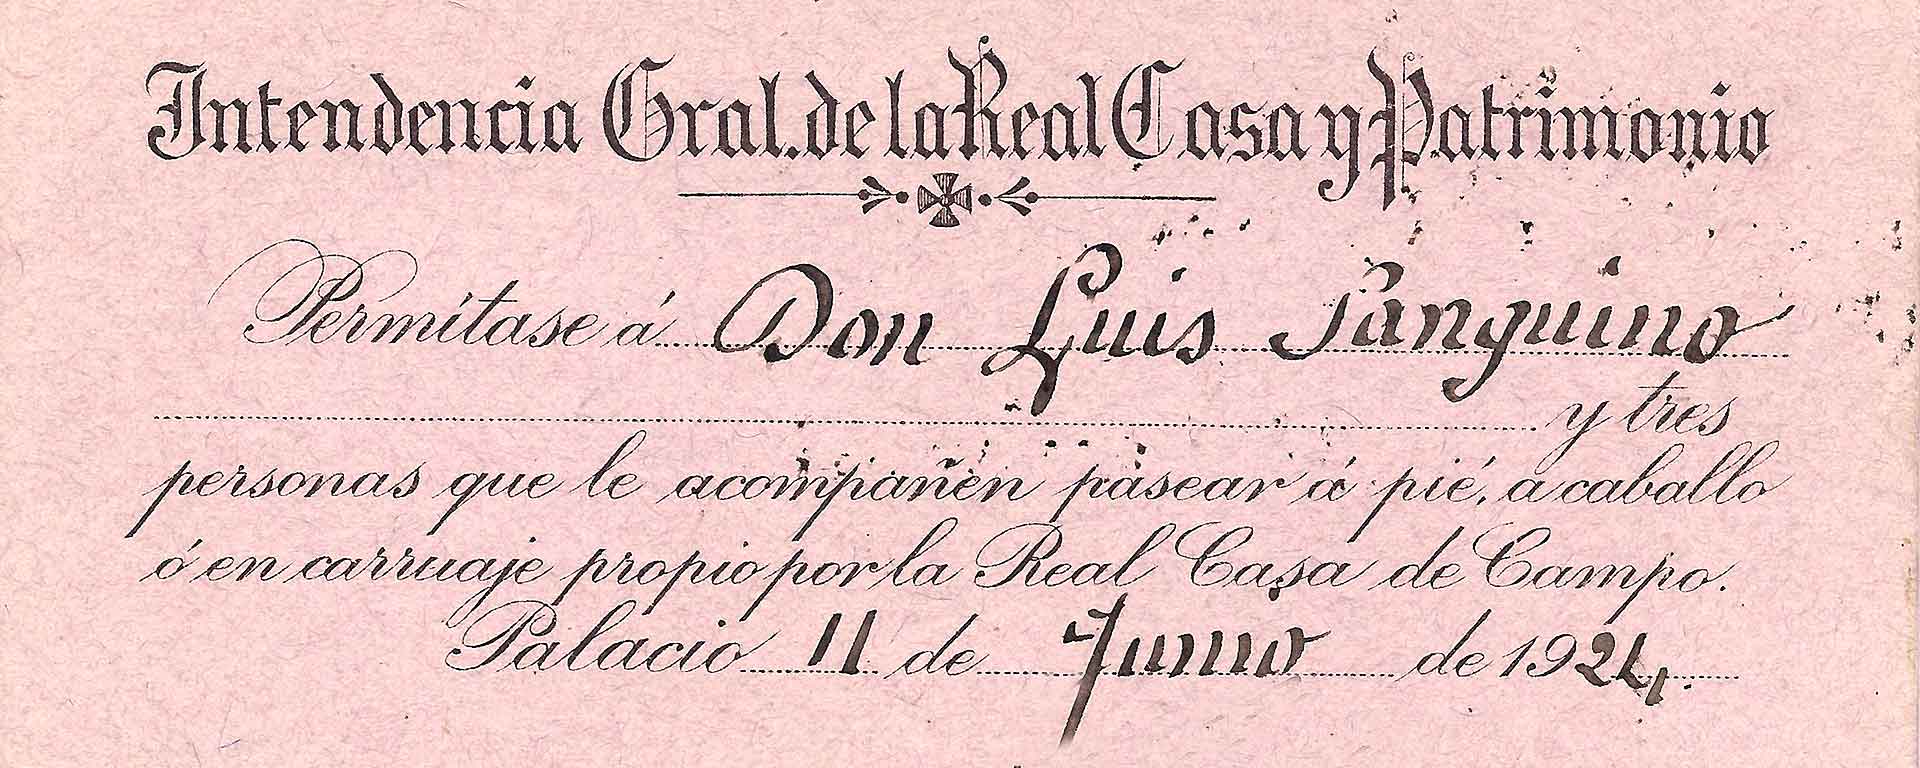 Intendencia Gral. de la Real Casa y Patrimonio
Permítase á Don Luis Sanguino
y tres
personas que le acompañen pasear á pié, a caballo
ó en carruaje propio por la Real Casa de Campo.
Palacio 11 de Junio de 1924.